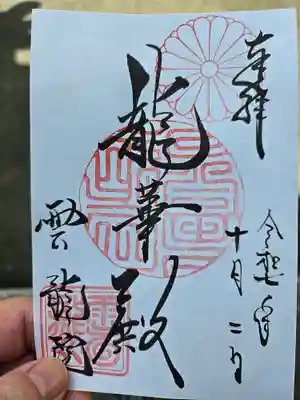 奉拝
令和 年
十月二日
龍華殿
雲龍院